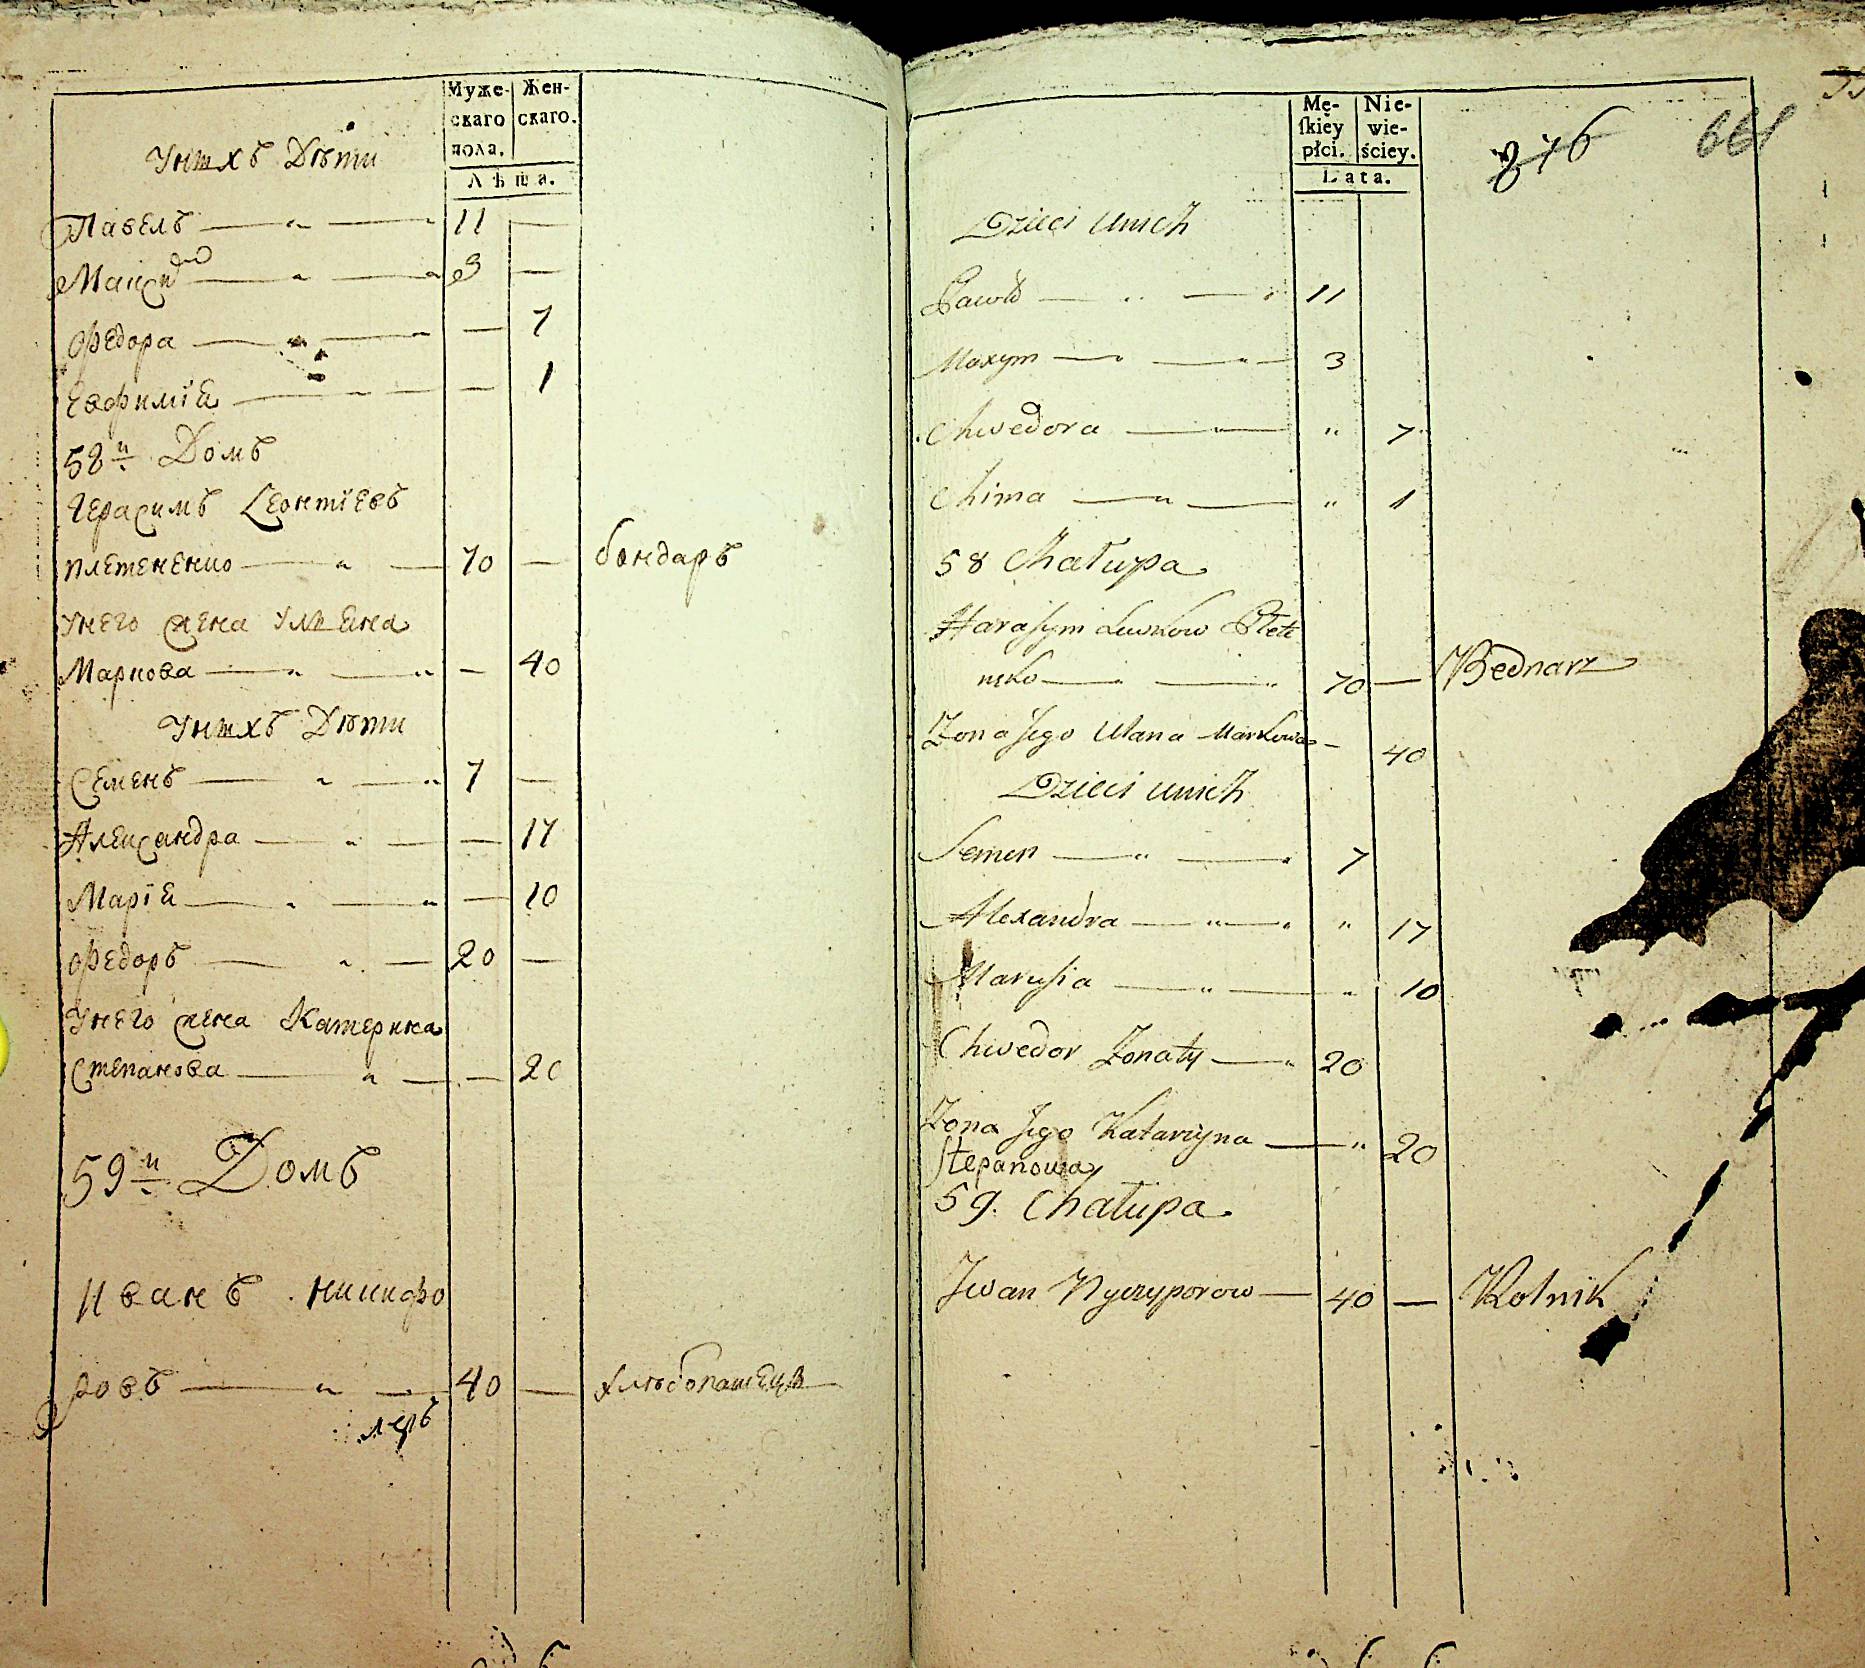 Муже- Жен-
скаго скаго.
пола.
Лѣта.
Унихъ Дѣти
Павелъ 11 —
Максим 3 —
Федора — 7
Евфимїя — 1
58й Домъ
Герасимъ Леонтїевъ
Плетененко 70 — бондаръ
Унего жена Ульяна
Маркова — 40
Унихъ Дѣти
Семенъ 7 —
Александра — 17
Марїя — 10
Федоръ 20 —
Унего жена Катерина
Степанова — 20
59й Домъ
Иванъ Никифо
ровъ 40 — хлѣбопашецъ
Mę- Nie-
ſkiey wie-
płci. ściey.
Lata.
876 661
Dzieci unich
Pawło 11
Maxym 3
Chwedora " 7
Chima " 1
58 Chałupa
Harasym Lewkow Plete
nko 70 — Bednarz
Zona Jego Ulana Markowa — 40
Dzieci unich
Semen 7
Alexandra " 17
Marusia " 10
Chwedor Zonaty 20
Zona Jego Katarzyna " 20
Stepanowa
59. Chałupa
Jwan Nyczyporow 40 — Rolnik